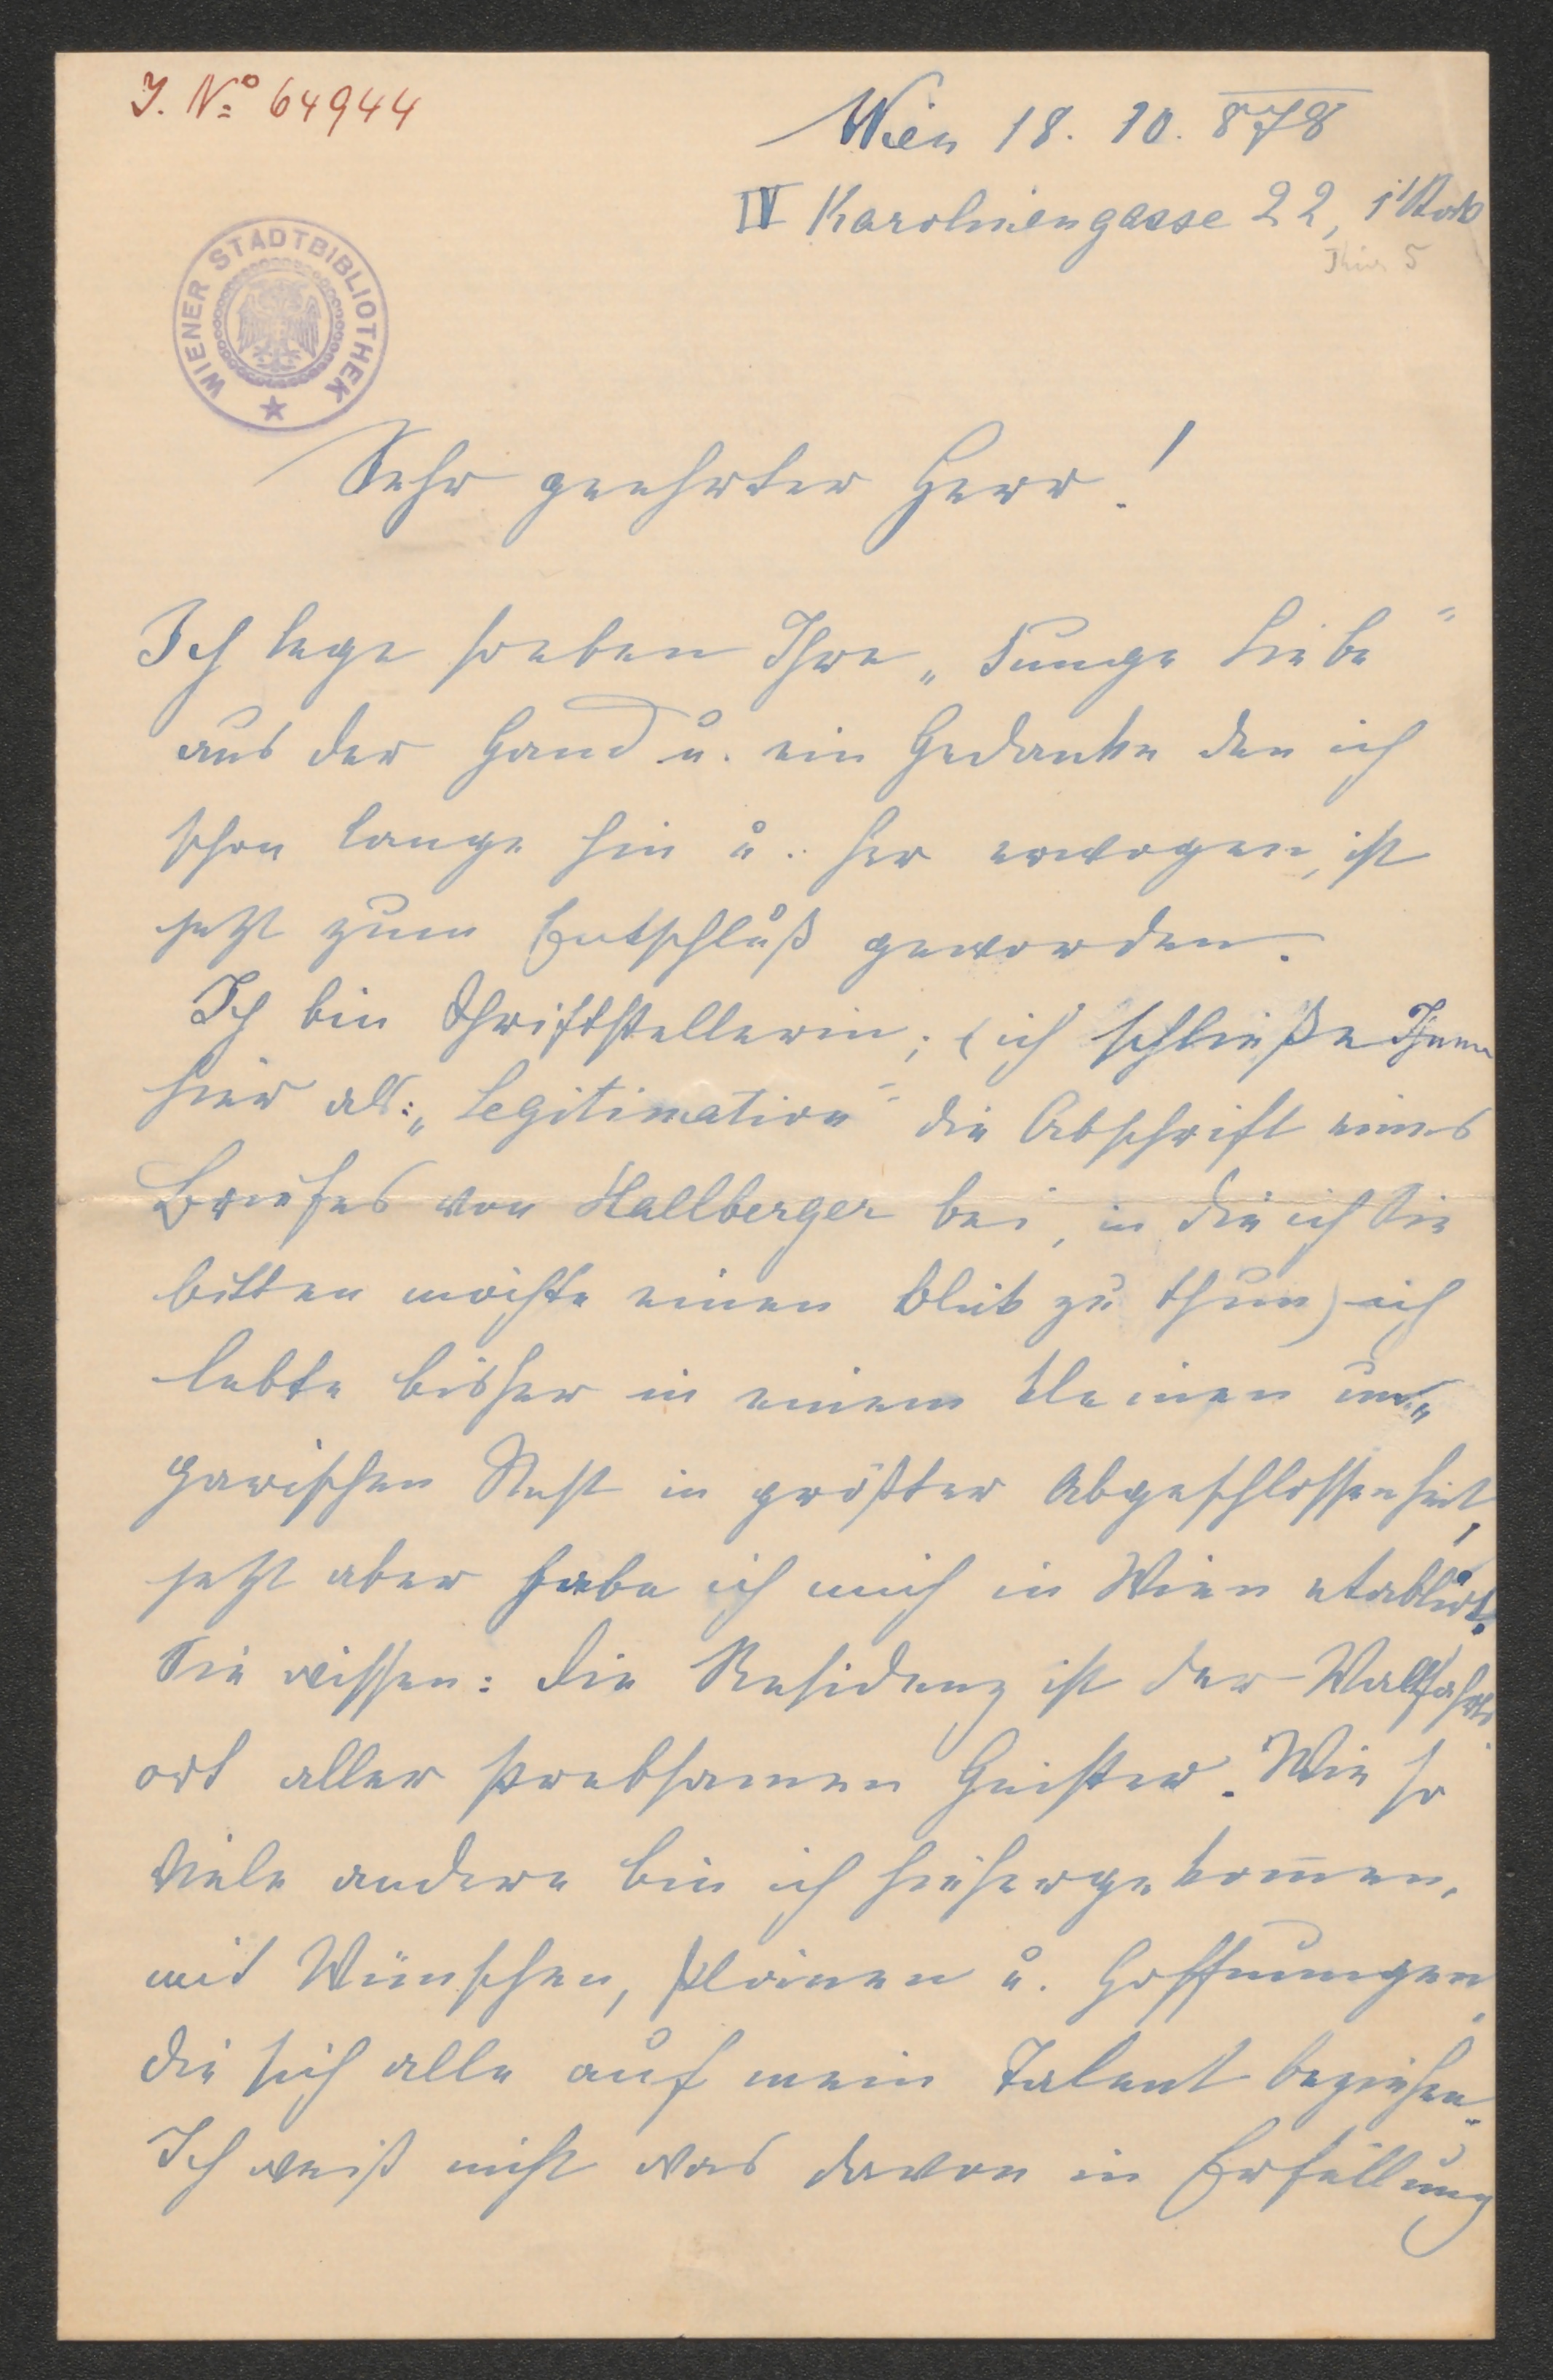 J. No 64944
Wien 18. 10. 878
IV Karolinengasse 22, 1 Stock
Thür 5
WIENER STADTBIBLIOTHEK
Sehr geehrter Herr!
Ich lege soeben Ihre „Junge Liebe"
aus der Hand u. ein Gedanke den ich
schon lange hin u. her erwogen, ist
jetzt zum Entschluß geworden.
Ich bin Schriftstellerin; (ich schließe Ihnen
hier als: „Legitimation" die Abschrift eines
Briefes von Hallberger bei, in die ich Sie
bitten möchte einen Blick zu thun) ich
lebte bisher in einem kleinen un„
garischen Nest in größter Abgeschlossenheit,
jetzt aber habe ich mich in Wien etablirt.
Sie wissen: die Residenz ist der Wallfahrts
ort aller strebsamen Geister. Wie so
viele andere bin ich hiehergekom̄en,
mit Wünschen, Plänen u. Hoffnungen,
die sich alle auf mein Talent beziehen.
Ich weiß nicht was davon in Erfüllung